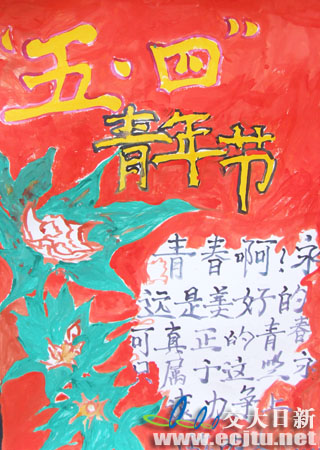 "五·四"
青年节
青春啊!永
远是美好的
可真正的青春
只属于这些永
力争上
交大日新
www.ecjtu.net